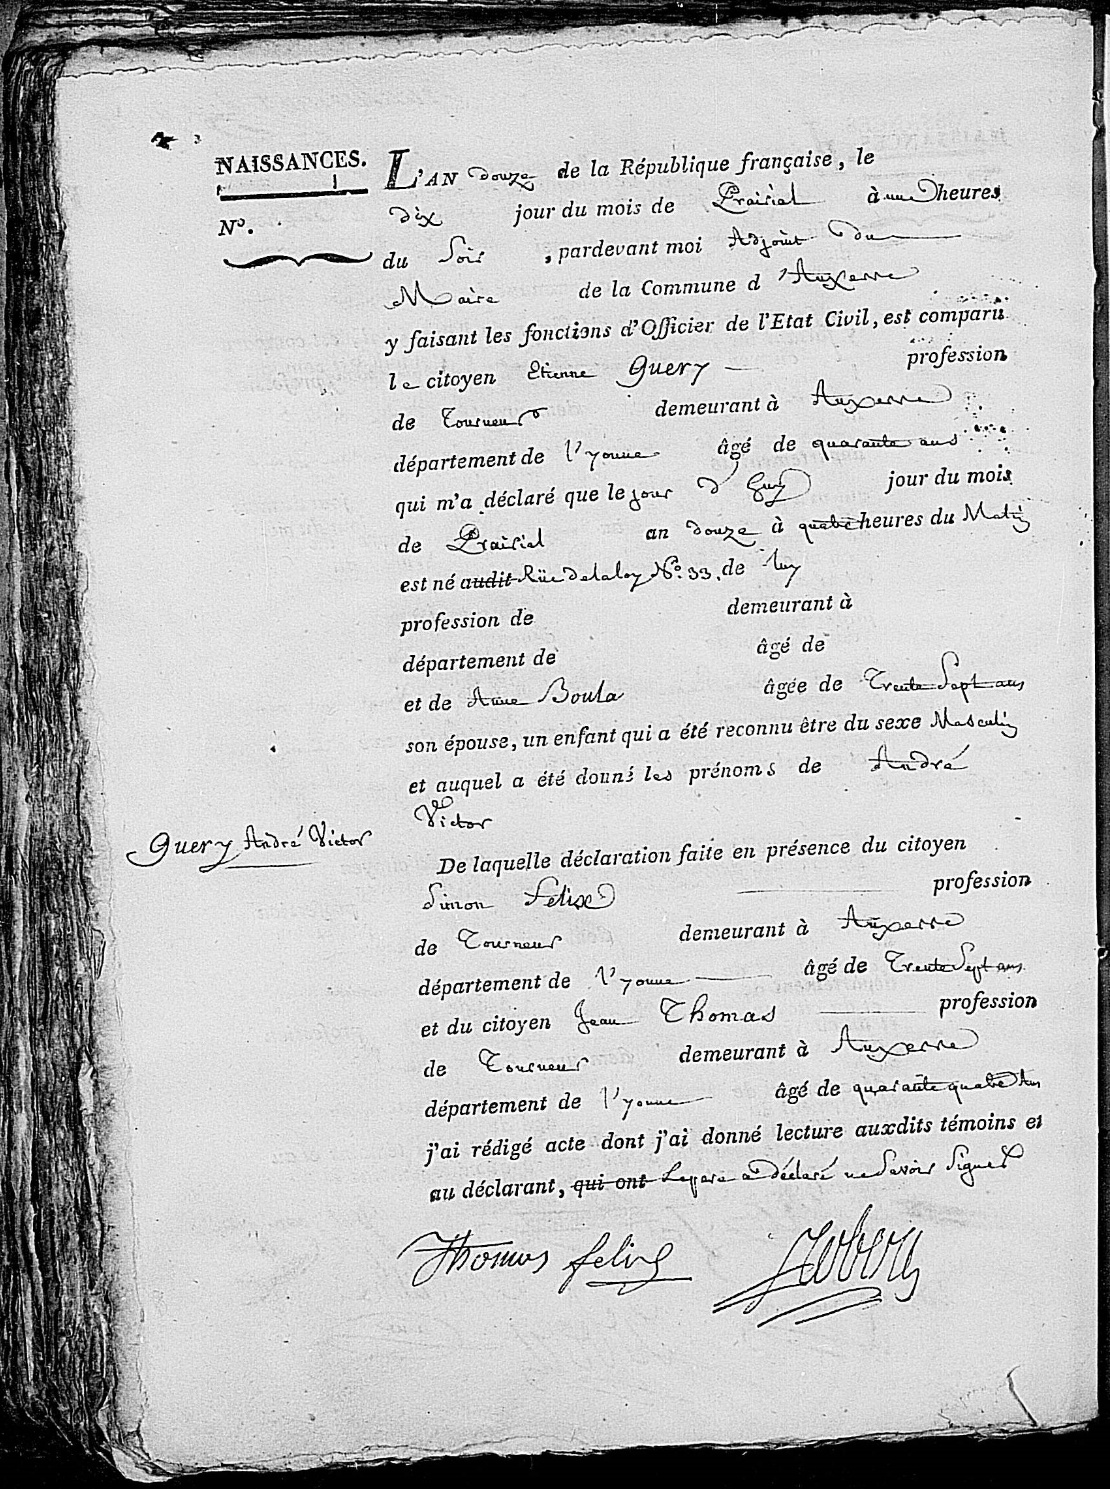 NAISSANCES.
N°.
L'AN douze de la République française, le
dix jour du mois de Prairial à une heures
du soir, pardevant moi Adjoint du
Maire de la Commune d'Auxerre
y faisant les fonctions d'Officier de l'Etat Civil, est comparu
le citoyen Etienne Guery profession
de Tourneur demeurant à Auxerre
département de l'yonne âgé de quarante ans
qui m'a déclaré que le jour d'huy jour du mois
de Prairial an douze à quatre heures du Matin
est né audit Rüe delaloy N°. 33. de luy
profession de demeurant à
département de âgé de
et de Anne Boula âgée de Trente Sept ans
son épouse, un enfant qui a été reconnu être du sexe Masculin
et auquel a été donné les prénoms de André
Victor
Guery André Victor
De laquelle déclaration faite en présence du citoyen
Simon Felix profession
de Tourneur demeurant à Auxerre
département de l'yonne âgé de Trente Sept ans
et du citoyen Jean Thomas profession
de Tourneur demeurant à Auxerre
département de l'yonne âgé de quarante quatre Ans
j'ai rédigé acte dont j'ai donné lecture auxdits témoins et
au déclarant, qui ont Le pere a déclaré ne Savoir Signer
Thomas felix